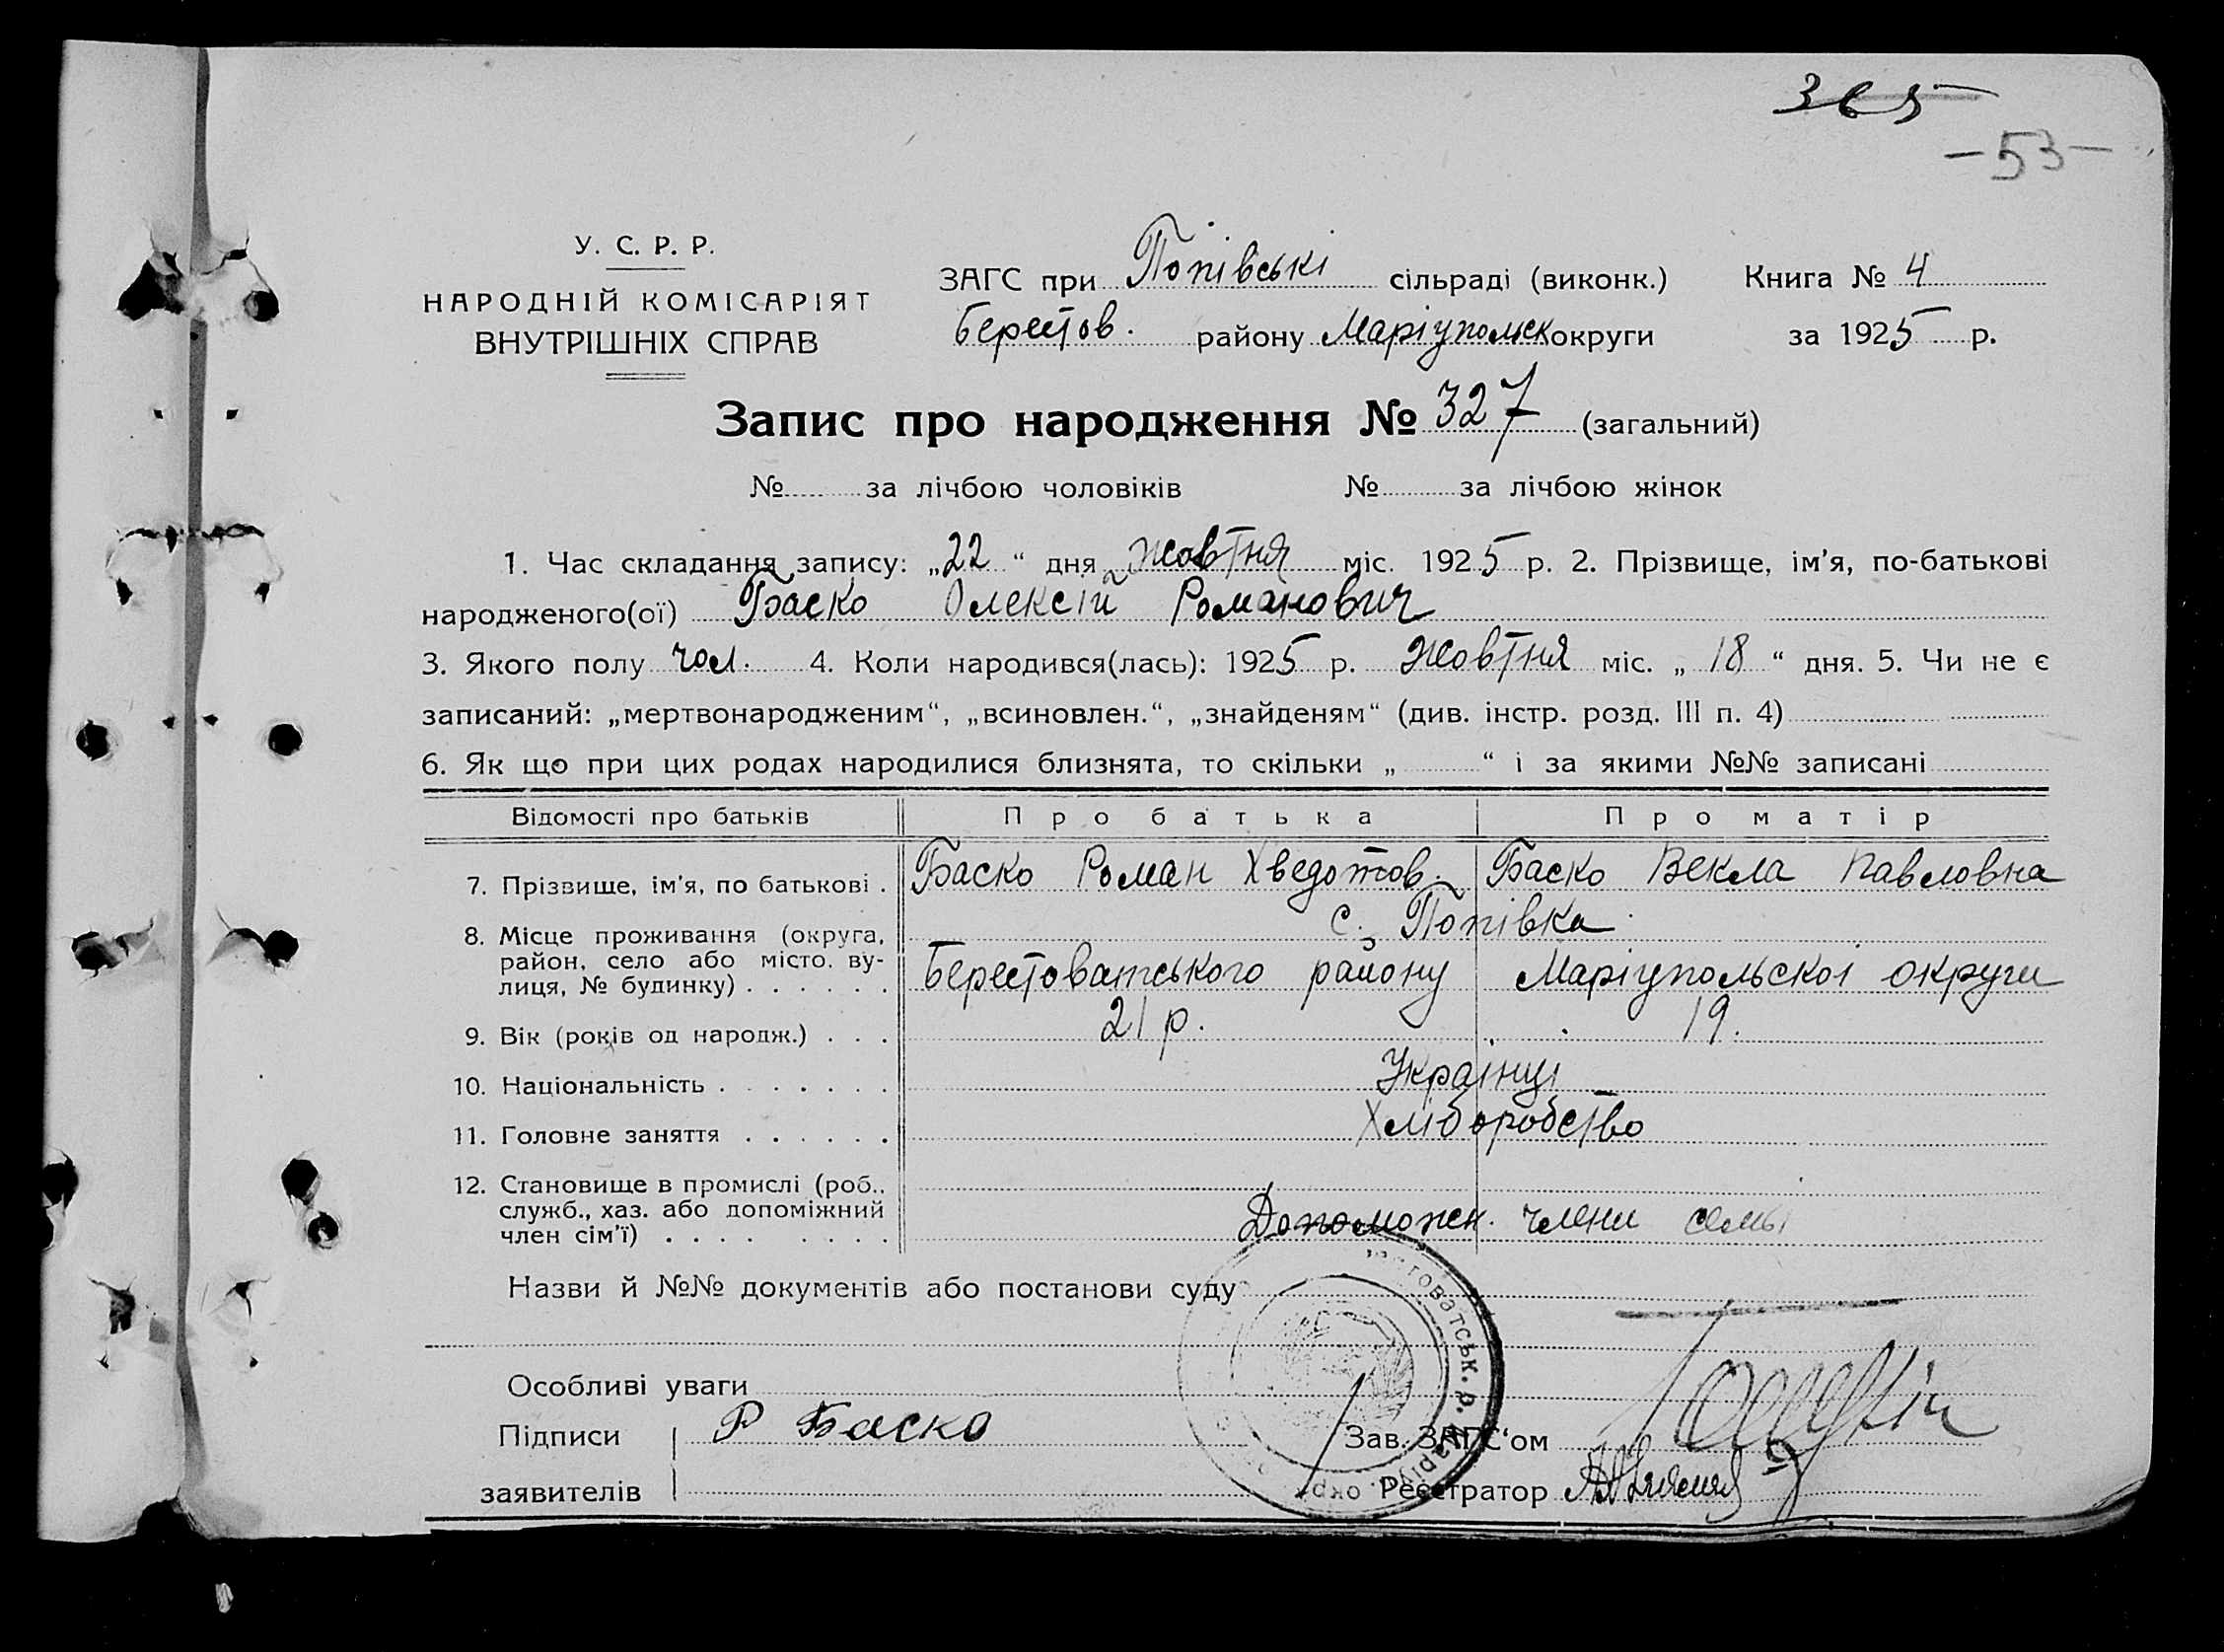 365
-53-
У. С. Р. Р.
НАРОДНІЙ КОМІСАРІЯТ
ВНУТРІШНІХ СПРАВ
ЗАГС при Попівські сільраді (виконк.) Книга № 4
Берестов. району Маріупольск округи за 1925 р.
Запис про народження № 327 (загальний)
№ за лічбою чоловіків № за лічбою жінок
1. Час складання запису: „22“ дня жовтня міс. 1925 р. 2. Прізвище, ім'я, по-батькові
народженого(ої) Баско Олексій Романович
3. Якого полу чол. 4. Коли народився(лась): 1925 р. жовтня міс. „18“ дня. 5. Чи не є
записаний: „мертвонародженим“, „всиновлен.“, „знайденям“ (див. інстр. розд. III п. 4)
6. Як що при цих родах народилися близнята, то скільки „ “ і за якими №№ записані
Відомості про батьків Про батька Про матір
7. Прізвище, ім'я, по батькові . Баско Роман Хведотов. Баско Векла Павловна
8. Місце проживання (округа, с. Попівка
район, село або місто, ву-
лиця, № будинку) . . . . . . Берестоватського району Маріупольскоі округи
9. Вік (років од народж.) . . . 21 р. 19.
10. Національність . . . . . . . Українці
11. Головне заняття . . . . . . Хліборобство
12. Становище в промислі (роб.,
служб., хаз. або допоміжний
член сім'ї) . . . . . . . . Допоможн. члени семьі
Назви й №№ документів або постанови суду
Особливі уваги
Підписи Р Баско Зав. ЗАГС'ом
заявителів Реєстратор